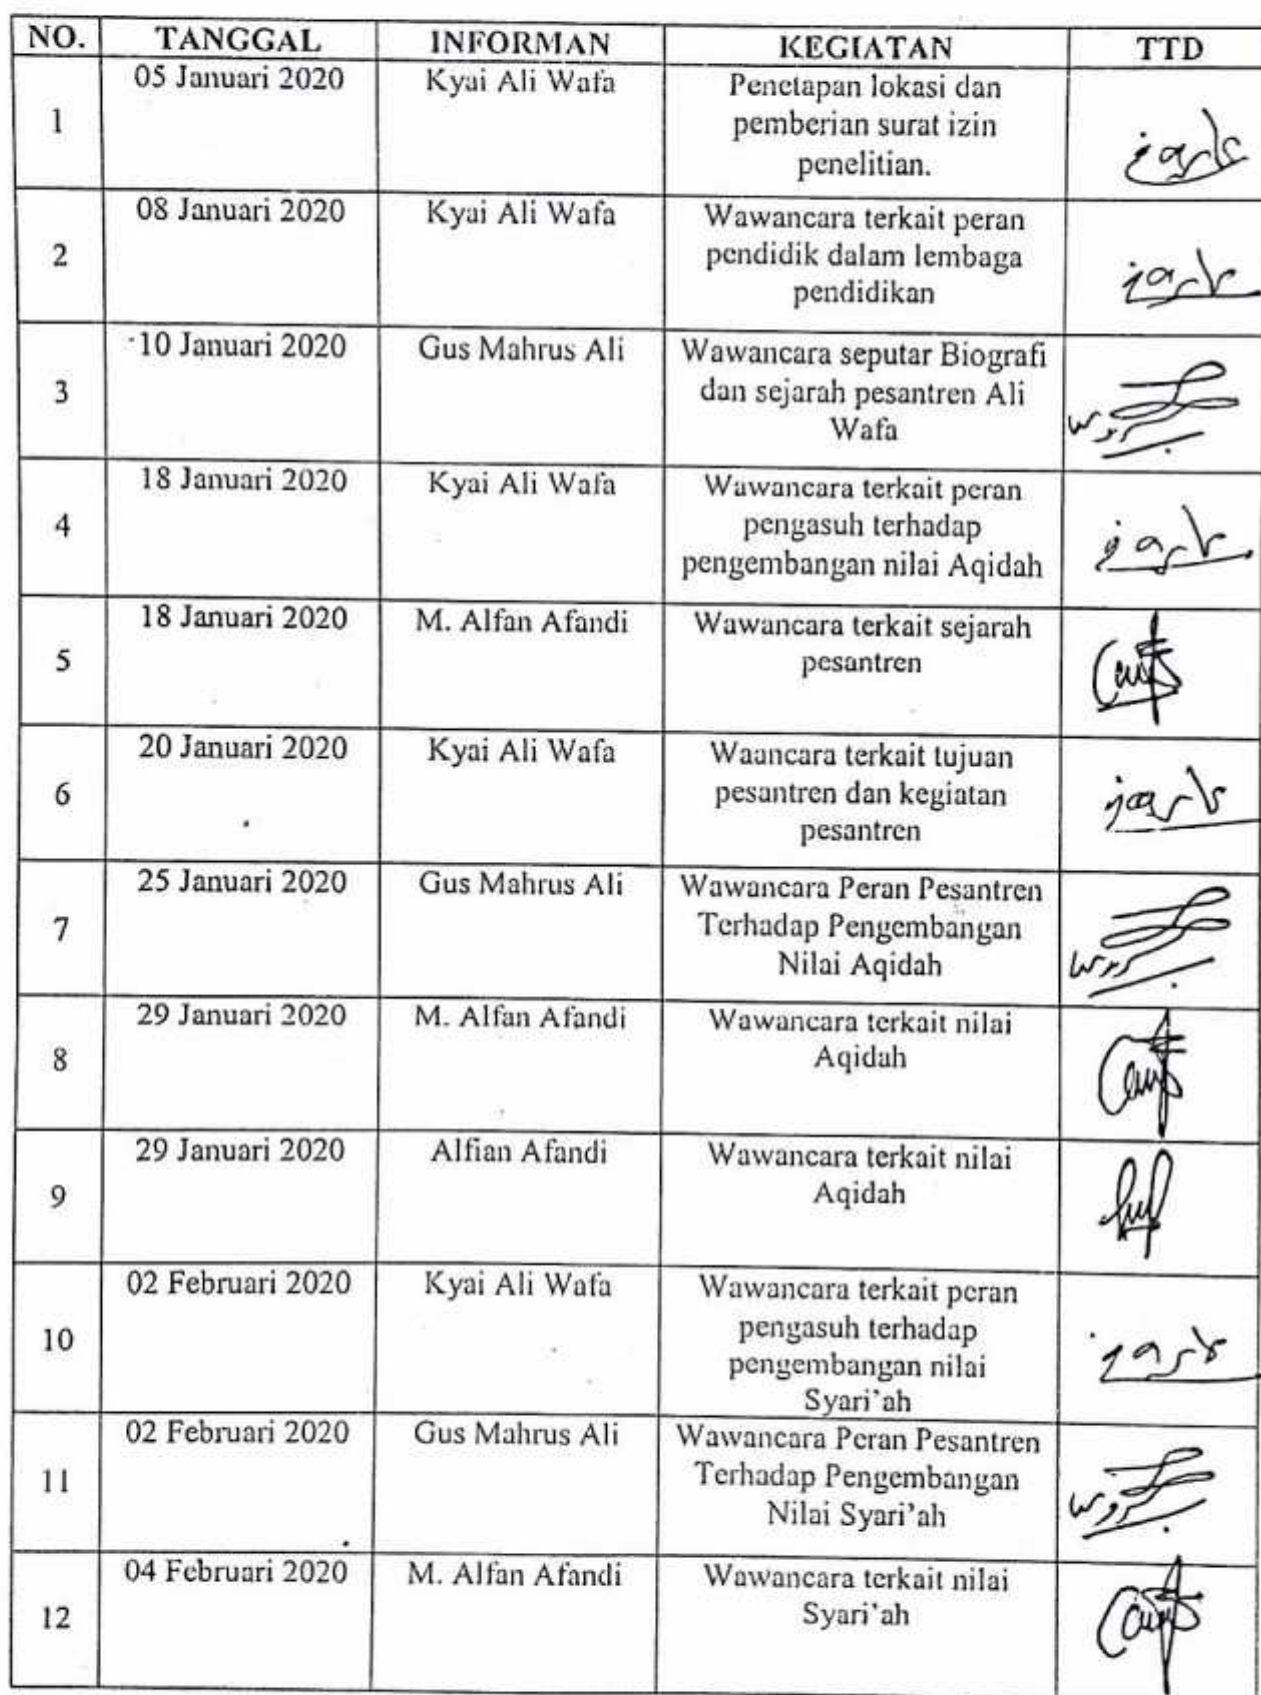 NO. TANGGAL INFORMAN KEGIATAN TTD
1 05 Januari 2020 Kyai Ali Wafa Penetapan lokasi dan
pemberian surat izin
penelitian.
2 08 Januari 2020 Kyai Ali Wafa Wawancara terkait peran
pendidik dalam lembaga
pendidikan
3 10 Januari 2020 Gus Mahrus Ali Wawancara seputar Biografi
dan sejarah pesantren Ali
Wafa
4 18 Januari 2020 Kyai Ali Wafa Wawancara terkait peran
pengasuh terhadap
pengembangan nilai Aqidah
5 18 Januari 2020 M. Alfan Afandi Wawancara terkait sejarah
pesantren
6 20 Januari 2020 Kyai Ali Wafa Waancara terkait tujuan
pesantren dan kegiatan
pesantren
7 25 Januari 2020 Gus Mahrus Ali Wawancara Peran Pesantren
Terhadap Pengembangan
Nilai Aqidah
8 29 Januari 2020 M. Alfan Afandi Wawancara terkait nilai
Aqidah
9 29 Januari 2020 Alfian Afandi Wawancara terkait nilai
Aqidah
10 02 Februari 2020 Kyai Ali Wafa Wawancara terkait peran
pengasuh terhadap
pengembangan nilai
Syari'ah
11 02 Februari 2020 Gus Mahrus Ali Wawancara Peran Pesantren
Terhadap Pengembangan
Nilai Syari'ah
12 04 Februari 2020 M. Alfan Afandi Wawancara terkait nilai
Syari'ah